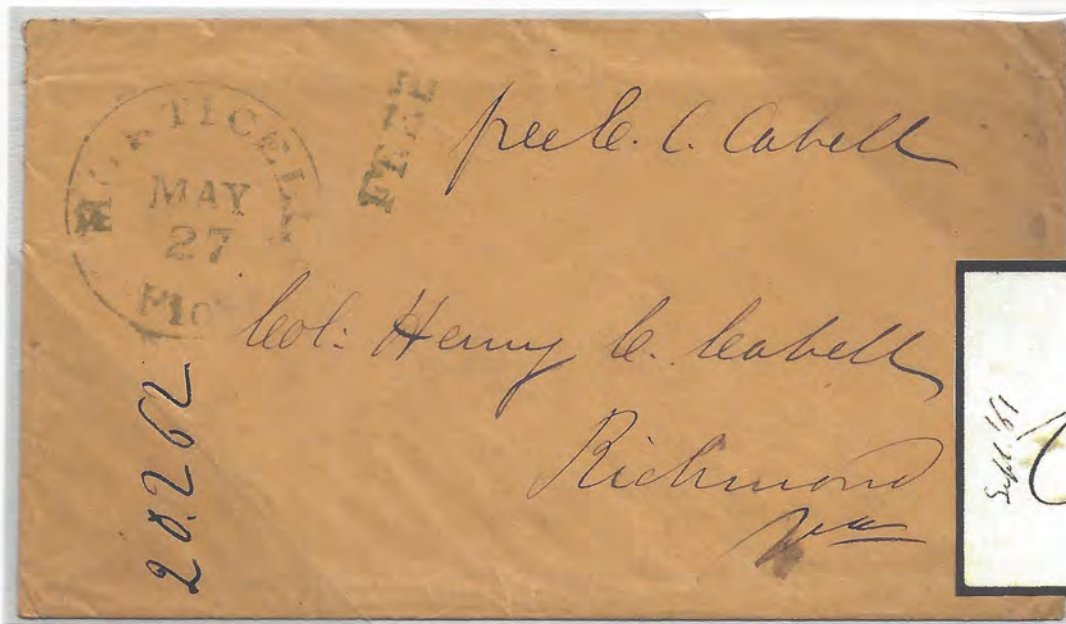 MONTICELLO
MAY
27
Flo
FREE
free E. C. Cabell
Col: Henry C. Cabell
Richmond
Va
20.262
Sept. '61